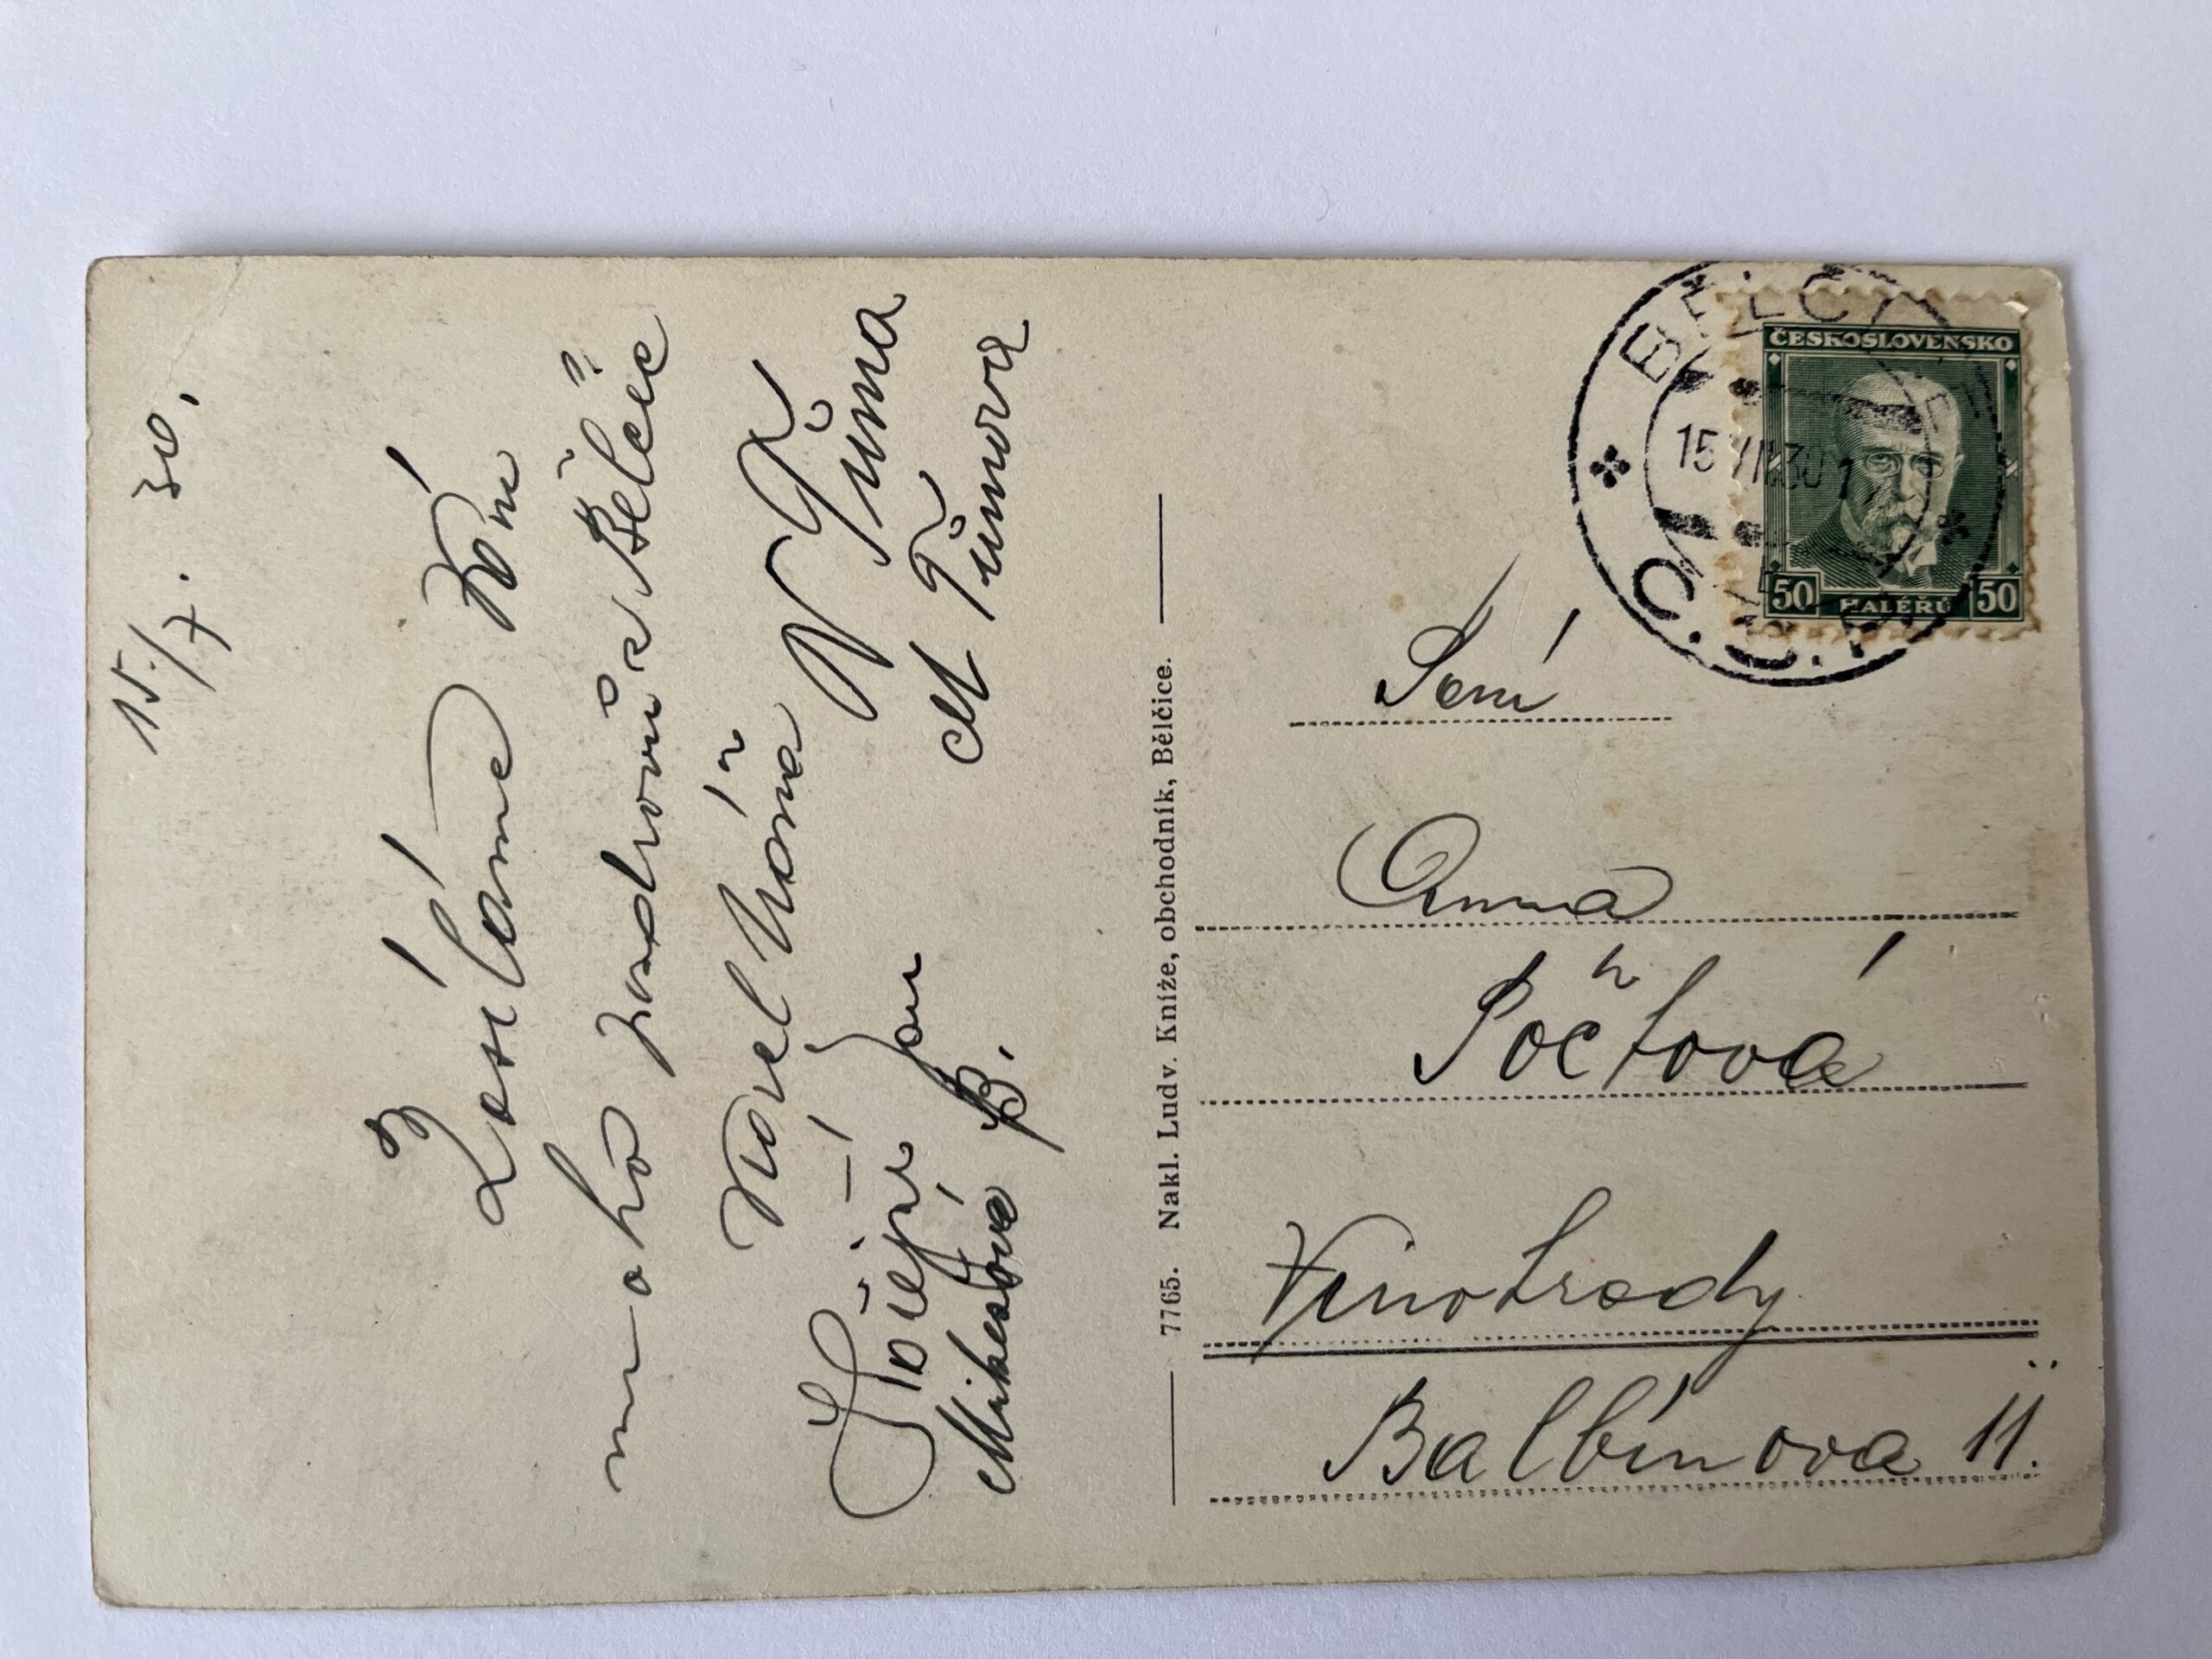 15./7. 30.
Zasíláme Vám
mnoho pozdravů z Bělčic
Karel Vrána V Tůma
Jan M Tůmová
Mikešová B.
7765. Nakl. Ludv. Kníže, obchodník, Bělčice.
BĚLČICE
15 VII 30 1
ČESKOSLOVENSKO
50 HALÉŘŮ 50
Paní
Anna
Počtová
Vinohrady
Balbínova 11.